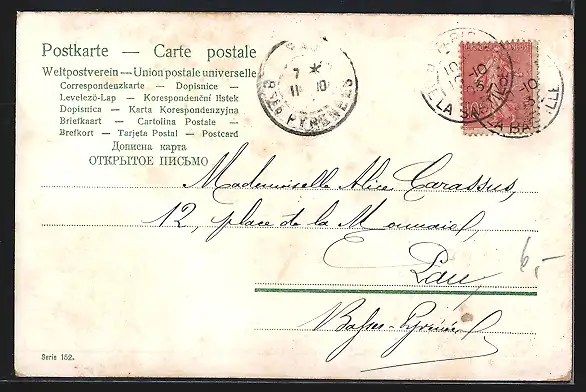 Postkarte — Carte postale
Weltpostverein — Union postale universelle
Correspondenzkarte — Dopisnice —
Levelező-Lap — Korespondenční lístek
Dopisnica — Karta Korespondenzyjna
Briefkaart — Cartolina Postale —
Brefkort — Tarjeta Postal — Postcard
Дописна карта
ОТКРЫТОЕ ПИСЬМО
PAU
7 *
11 10
BSES PYRENEES
10
LA BA VILLE
Mademoiselle Alice Carassus,
12, place de la Monnaie,
Pau
6,-
Basses-Pyrénées
Serie 152.